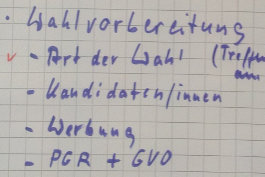 · Wahlvorbereitung
✓ - Art der Wahl (Treffen
am
- Kandidaten/innen
- Werbung
- PGR + GVO